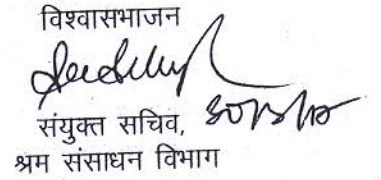 विश्वासभाजन
संयुक्त सचिव,
श्रम संसाधन विभाग